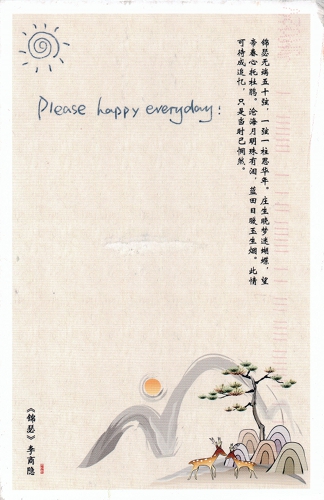 Please happy everyday:
锦瑟无端五十弦，一弦一柱思华年。庄生晓梦迷蝴蝶，望
帝春心托杜鹃。沧海月明珠有泪，蓝田日暖玉生烟。此情
可待成追忆，只是当时已惘然。
《锦瑟》李商隐